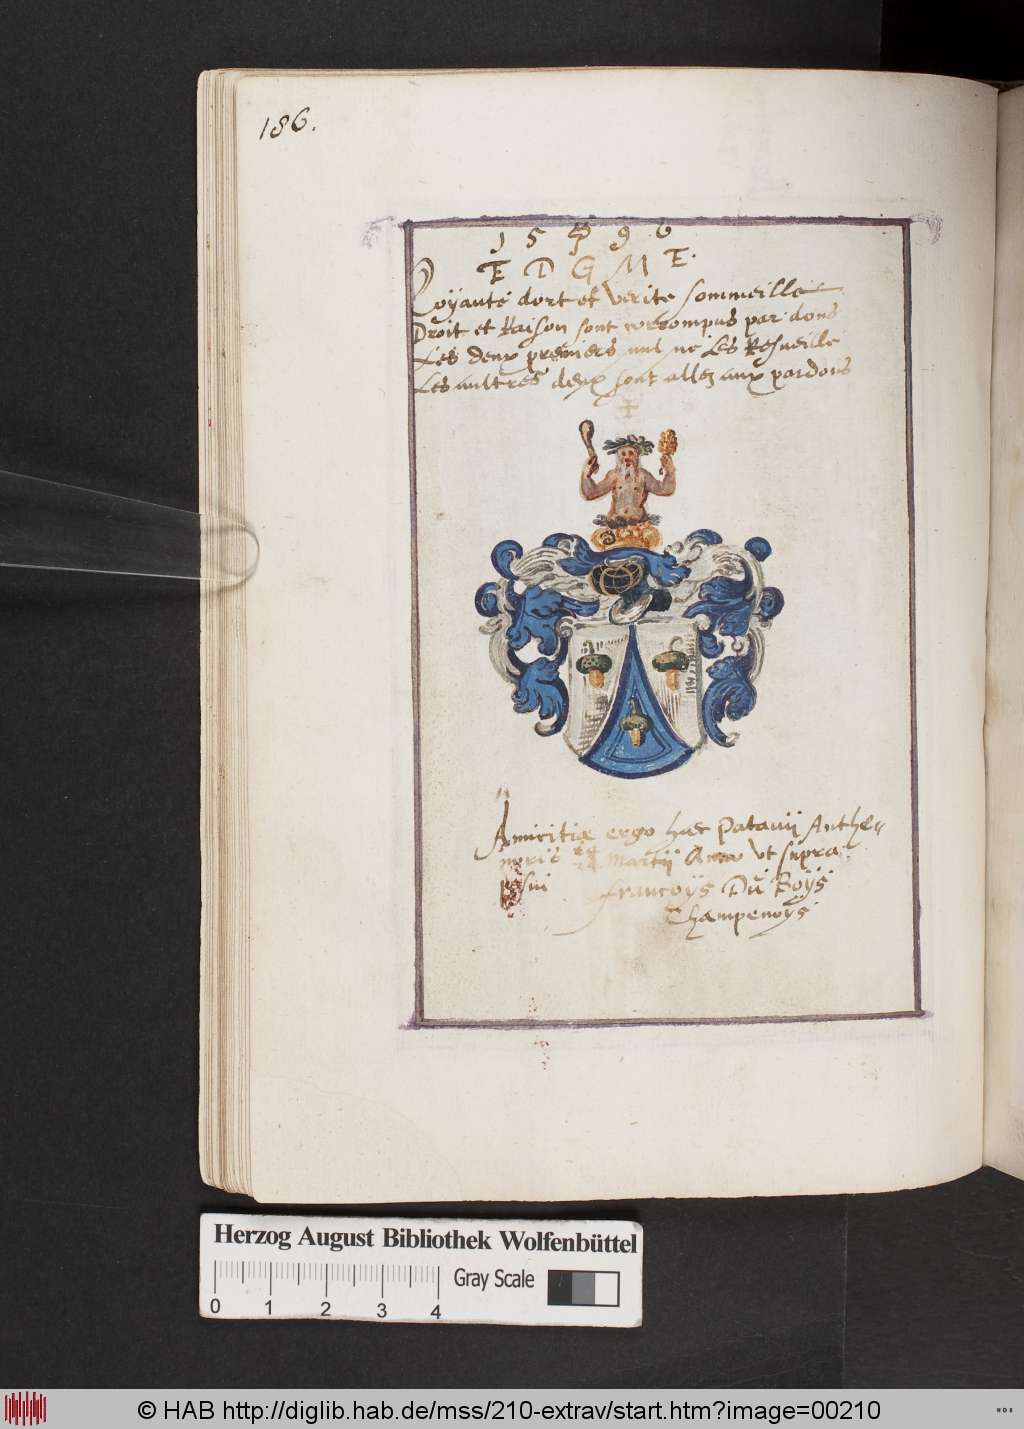 186.
1 5 9 6
E D G M E.
Loyauté dort et verite sommeille
Droit et Raison sont corrompus par dons
Les deux premiers nul ne Les Resueille
Les aultres deux sont allez aux pardons
Amicitiæ ergo hæc Patauij Anthe-
noris Martij Anno vt supra
posui Françoys Du Boys
Champenoys
Herzog August Bibliothek Wolfenbüttel
Gray Scale
0 1 2 3 4
© HAB http://diglib.hab.de/mss/210-extrav/start.htm?image=00210